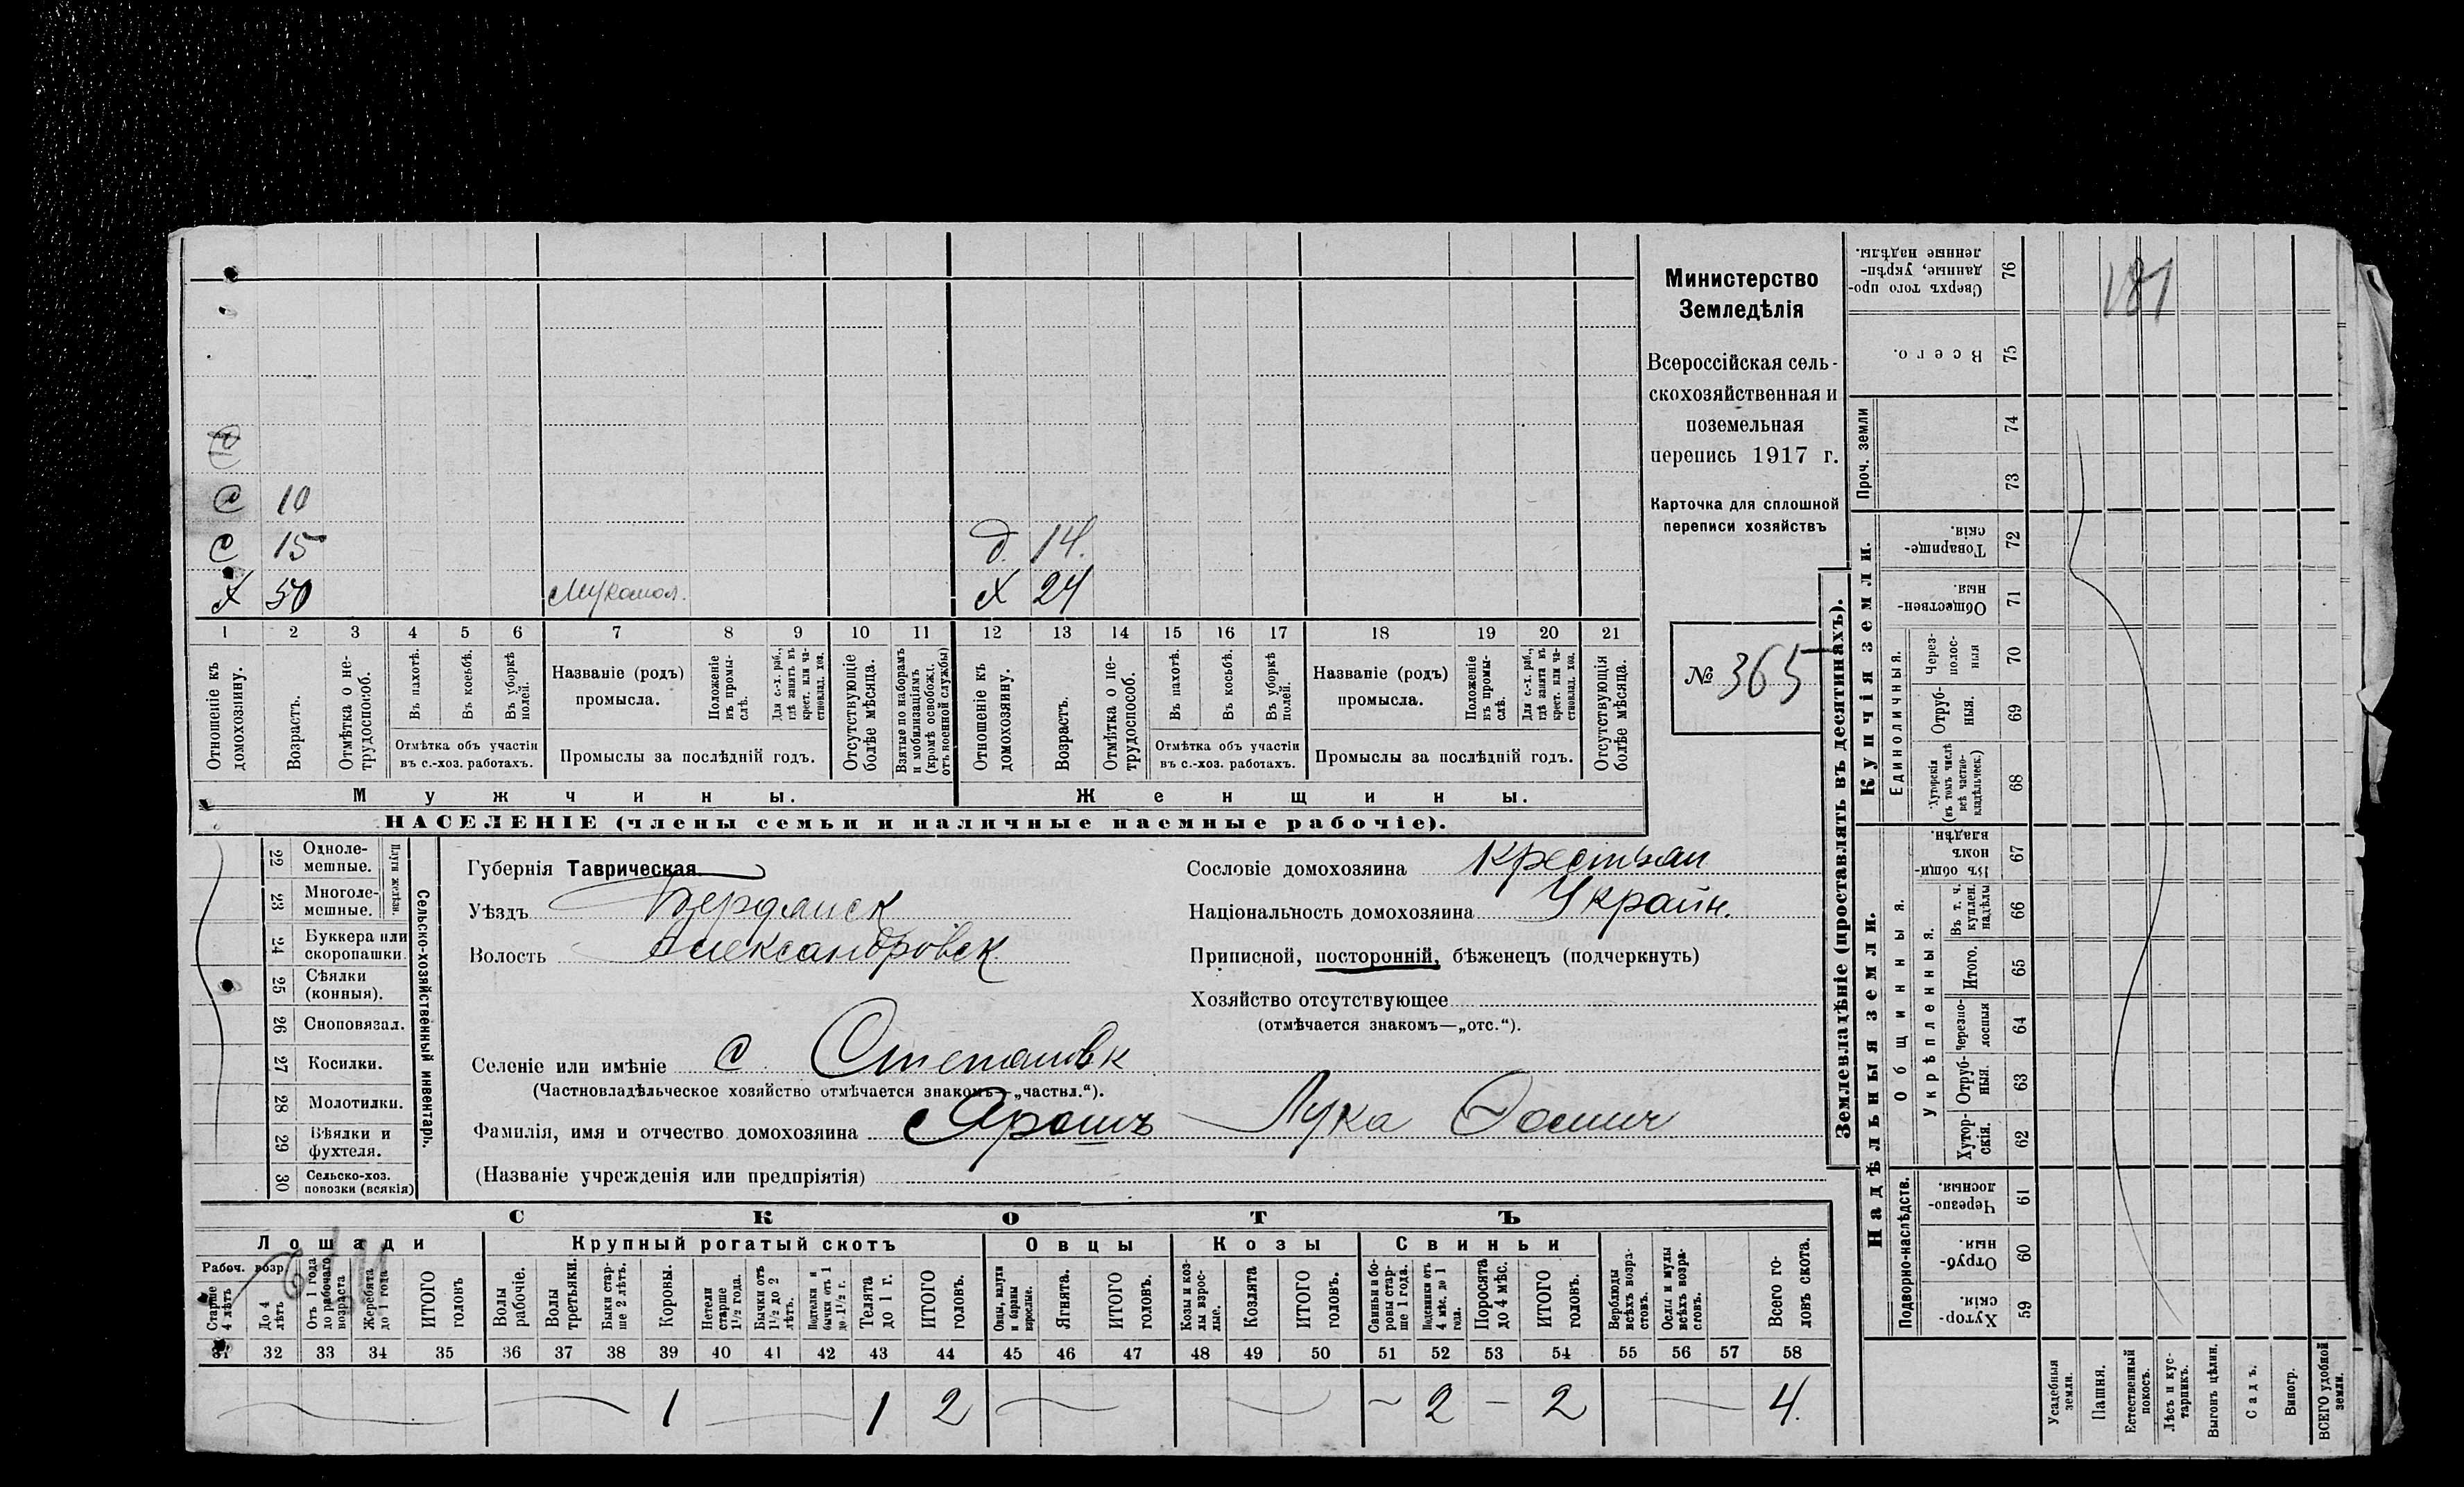 Министерство
Земледѣлія
Всероссійская сель-
скохозяйственная и
поземельная
перепись 1917 г.
Карточка для сплошной
переписи хозяйствъ
№ 365
181
С 10
С 15
Х 50 Мукомол.
д. 14.
Х 24
1 2 3 4 5 6 7 8 9 10 11 12 13 14 15 16 17 18 19 20 21
Отношеніе къ домохозяину.
Возрастъ.
Отмѣтка о не-трудоспособ.
Въ пахотѣ.
Въ косьбѣ.
Въ уборкѣ полей.
Отмѣтка объ участіи
въ с.-хоз. работахъ.
Названіе (родъ)
промысла.
Положеніе въ промы-слѣ.
Для с.-х. раб., гдѣ занятъ въ крест. или ча-стновлад. хоз.
Промыслы за послѣдній годъ.
Отсутствующіе болѣе мѣсяца.
Взятые по наборамъ и мобилизаціямъ (кромѣ освобожд. отъ военной службы)
Отношеніе къ домохозяину.
Возрастъ.
Отмѣтка о не-трудоспособ.
Въ пахотѣ.
Въ косьбѣ.
Въ уборкѣ полей.
Отмѣтка объ участіи
въ с.-хоз. работахъ.
Названіе (родъ)
промысла.
Положеніе въ промы-слѣ.
Для с.-х. раб., гдѣ занята въ крест. или ча-стновлад. хоз.
Промыслы за послѣдній годъ.
Отсутствующія болѣе мѣсяца.
Мужчины.
Женщины.
НАСЕЛЕНІЕ (члены семьи и наличные наемные рабочіе).
Сельско-хозяйственный инвентарь.
Плуги желѣзн.
22 Одноле-
мешные.
23 Многоле-
мешные.
24 Буккера или
скоропашки.
25 Сѣялки
(конныя).
26 Сноповязал.
27 Косилки.
28 Молотилки.
29 Вѣялки и
фухтеля.
30 Сельско-хоз.
повозки (всякія)
Губернія Таврическая.
Уѣздъ Бердянск
Волость Александровск
Селеніе или имѣніе с. Степановк
(Частновладѣльческое хозяйство отмѣчается знакомъ—„частвл.“).
Фамилія, имя и отчество домохозяина Ярошъ Лука Фомич
(Названіе учрежденія или предпріятія)
Сословіе домохозяина Крестьян
Національность домохозяина Украин.
Приписной, посторонній, бѣженецъ (подчеркнуть)
Хозяйство отсутствующее
(отмѣчается знакомъ—„отс.“).
СКОТЪ
Лошади
Крупный рогатый скотъ
Овцы
Козы
Свиньи
Рабоч. возр.
Старше 4 лѣтъ
До 4 лѣтъ
Отъ 1 года до рабочаго возраста
Жеребята до 1 года
ИТОГО головъ
Волы рабочіе.
Волы третьяки.
Быки стар-ше 2 лѣтъ.
Коровы.
Нетели старше 1½ года.
Бычки отъ 1½ до 2 лѣтъ.
Подтелки и бычки отъ 1 до 1½ г.
Телята до 1 г.
ИТОГО головъ.
Овцы, валухи и бараны взрослые.
Ягнята.
ИТОГО головъ.
Козы и коз-лы взрос-лые.
Козлята
ИТОГО головъ.
Свиньи и бо-ровы стар-ше 1 года.
Подсвинки отъ 4 мѣс. до 1 года.
Поросята до 4 мѣс.
ИТОГО головъ.
Верблюды всѣхъ возра-стовъ.
Ослы и мулы всѣхъ возра-стовъ.
Всего го-ловъ скота.
31 32 33 34 35 36 37 38 39 40 41 42 43 44 45 46 47 48 49 50 51 52 53 54 55 56 57 58
1 1 2 2 — 2 4.
Землевладѣніе (проставлять въ десятинахъ).
Надѣльныя земли.
Купчія земли.
Проч. земли
Подворно-наслѣдств.
Общинныя.
Укрѣпленныя.
Единоличныя.
Сверхъ того про-данные, укрѣп-ленные надѣлы. 76
Всего. 75
74
73
Товарище-скія. 72
Обществен-ныя. 71
Через-полос-ныя 70
Отруб-ныя. 69
Хуторскія (въ томъ числѣ всѣ частно-владѣльческ.) 68
Въ общин-номъ владѣн. 67
Въ т. ч. куплен. надѣлы 66
Итого. 65
Черезпо-лосныя 64
Отруб-ныя. 63
Хутор-скія. 62
Черезпо-лосныя. 61
Отруб-ныя. 60
Хутор-скія. 59
Усадебныя земли.
Пашня.
Естественный покосъ.
Лѣсъ и кус-тарникъ.
Выгонъ цѣлин.
Садъ.
Виногр.
ВСЕГО удобной земли.